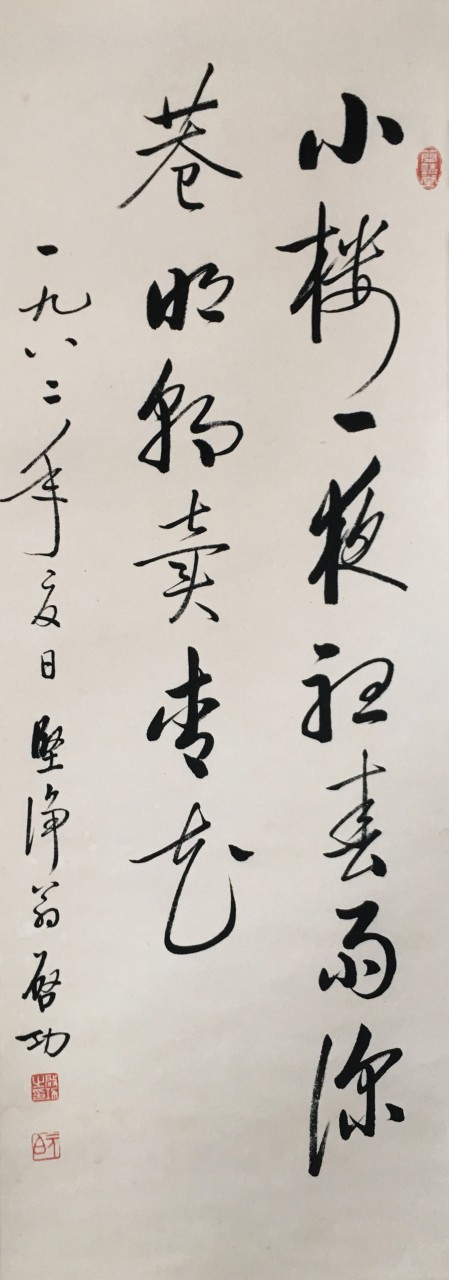 小楼一夜聽春雨深
巷明朝賣杏花
一九八二年夏日 堅净翁啓功
元白